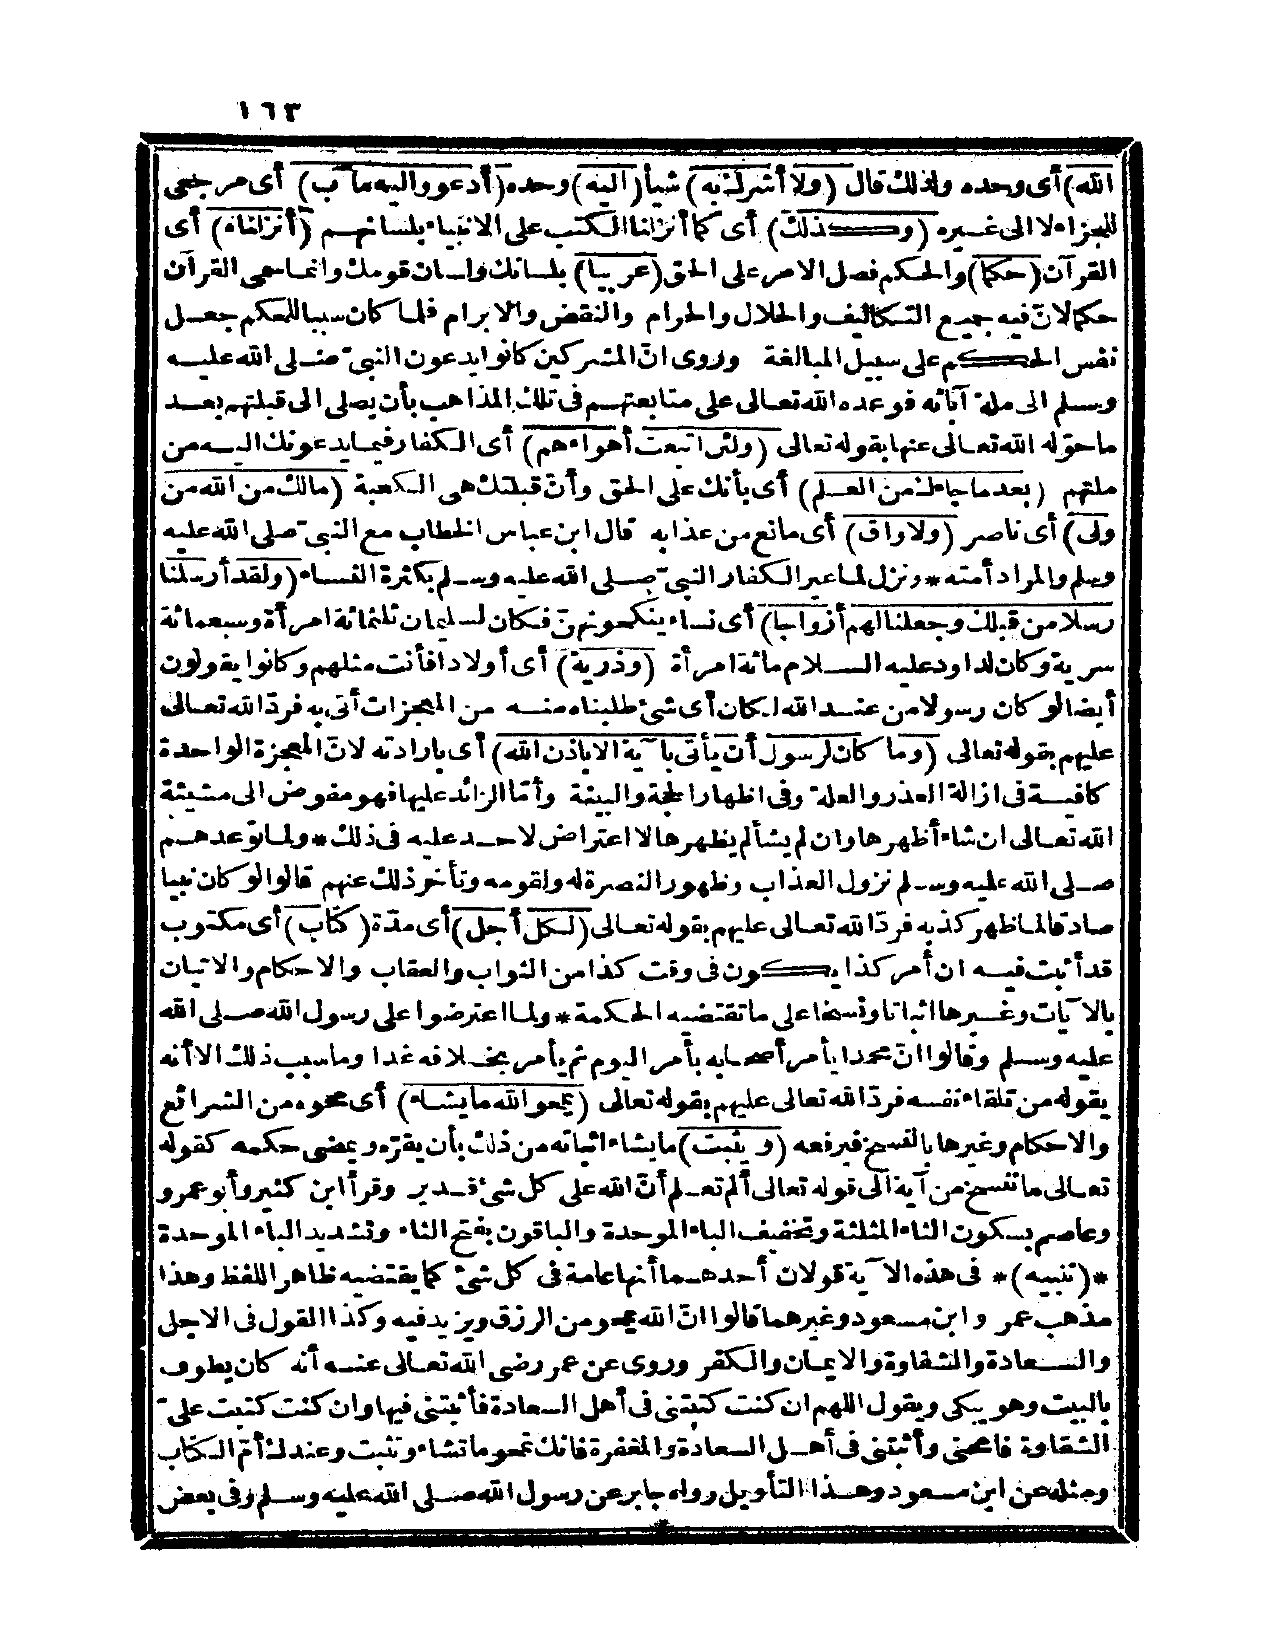 ١٦٣
الله) أى وحده ولذلك قال (ولا أشرك به) شيأ (اليه) وحده (أدعو واليه مآب) أى مرجعى
للجزاء لا الى غيره (وكذلك) أى كما أنزلنا الكتب على الانبياء بلسانهم (أنزلناه) أى
القرآن (حكما) والحكم فصل الامر على الحق (عربيا) بلسانك ولسان قومك وانما سمى القرآن
حكما لانّ فيه جميع التكاليف والحلال والحرام والنقض والابرام فلما كان سببا للحكم جعل
نفس الحكم على سبيل المبالغة وروى انّ المشركين كانوا يدعون النبىّ صلى الله عليه
وسلم الى ملة آبائه فوعده الله تعالى على متابعتهم فى تلك المذاهب بأن يصلى الى قبلتهم بعد
ما حوّله الله تعالى عنها بقوله تعالى (ولئن اتبعت أهواءهم) أى الكفار فيما يدعونك اليه من
ملتهم (بعد ما جاءك من العلم) أى بأنك على الحق وأنّ قبلتك هى الكعبة (مالك من الله من
ولى) أى ناصر (ولا واق) أى مانع من عذابه قال ابن عباس الخطاب مع النبىّ صلى الله عليه
وسلم والمراد أمته * ونزل لما عير الكفار النبىّ صلى الله عليه وسلم بكثرة النساء (ولقد أرسلنا
رسلا من قبلك وجعلنا لهم أزواجا) أى نساء ينكحونهنّ فكان لسليمان ثلثمائة امرأة وسبعمائة
سرية وكان لداود عليه السلام مائة امرأة (وذرية) أى أولادا فأنت مثلهم وكانوا يقولون
أيضا لو كان رسولا من عند الله لكان أى شئ طلبناه منه من المعجزات أتى به فردّ الله تعالى
عليهم بقوله تعالى (وما كان لرسول أن يأتى بآية الا باذن الله) أى بارادته لانّ المعجزة الواحدة
كافية فى ازالة العذر والعلة وفى اظهار الحجة والبينة وأمّا الزائد عليها فهو مفوض الى مشيئة
الله تعالى ان شاء أظهرها وان لم يشأ لم يظهرها لا اعتراض لاحد عليه فى ذلك * ولما توعدهم
صلى الله عليه وسلم نزول العذاب وظهور النصرة له ولقومه وتأخر ذلك عنهم قالوا لو كان نبيا
صادقا لما ظهر كذبه فردّ الله تعالى عليهم بقوله تعالى (لكل أجل) أى مدّة (كتاب) أى مكتوب
قد أثبت فيه ان أمر كذا يكون فى وقت كذا من الثواب والعقاب والاحكام والاتيان
بالآيات وغيرها اثباتا ونسخا على ما تقتضيه الحكمة * ولما اعترضوا على رسول الله صلى الله
عليه وسلم وقالوا انّ محمدا يأمر أصحابه بأمر اليوم ثم يأمر بخلافه غدا وما سبب ذلك الا أنه
يقوله من تلقاء نفسه فردّ الله تعالى عليهم بقوله تعالى (يمحو الله ما يشاء) أى محوه من الشرائع
والاحكام وغيرها بالنسخ فيرفعه (ويثبت) ما يشاء اثباته من ذلك بأن يقرّه ويمضى حكمه كقوله
تعالى ما ننسخ من آية الى قوله تعالى ألم تعلم أنّ الله على كل شئ قدير وقرأ ابن كثير وأبو عمرو
وعاصم بسكون الثاء المثلثة وتخفيف الباء الموحدة والباقون بفتح الثاء وتشديد الباء الموحدة
*(تنبيه)* فى هذه الآية قولان أحدهما أنها عامة فى كل شئ كما يقتضيه ظاهر اللفظ وهذا
مذهب عمر وابن مسعود وغيرهما قالوا انّ الله يمحو من الرزق ويزيد فيه وكذا القول فى الاجل
والسعادة والشقاوة والايمان والكفر وروى عن عمر رضى الله تعالى عنه أنه كان يطوف
بالبيت وهو يبكى ويقول اللهم ان كنت كتبتنى فى أهل السعادة فأثبتنى فيها وان كنت كتبت علىّ
الشقاوة فامحنى وأثبتنى فى أهل السعادة والمغفرة فانك تمحو ما تشاء وتثبت وعندك أمّ الكتاب
ومثله عن ابن مسعود وهذا التأويل رواه جابر عن رسول الله صلى الله عليه وسلم وفى بعض